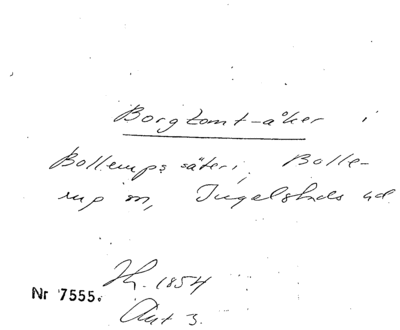 Borgtomt-åker i
Bollerups säteri, Bolle-
rup sn, Ingelstads hd
Th. 1854
Akt 3.
Nr 7555.